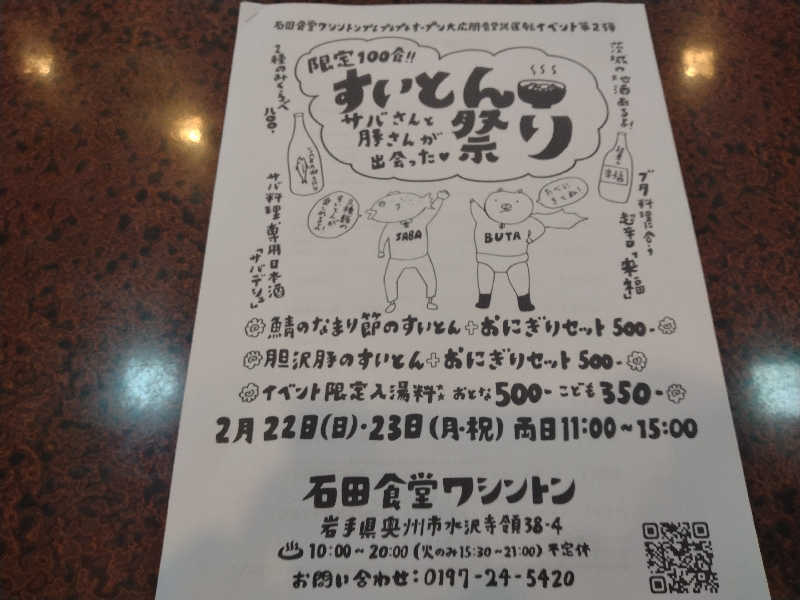 石田食堂ワシントンプレプレプレオープン大広間食堂洪運転イベント第2弾
限定100食!!
すいとん祭り
サバさんと
豚さんが
出会った♥
2種のみくらべ
800-
サバ料理専用日本酒
「サバデシュ」
茨城の地酒あるよ!
ブタ料理に合う
超辛口「来福」
来福
2種類の
すいとんが
楽しめるよ!
たべに
きてね!
SABA
BUTA
鯖のなまり節のすいとん+おにぎりセット 500-
胆沢豚のすいとん+おにぎりセット 500-
イベント限定入湯料 おとな500- こども350-
2月22日(日)・23日(月・祝) 両日11:00~15:00
石田食堂ワシントン
岩手県奥州市水沢寺領38-4
♨ 10:00~20:00 (火のみ15:30~21:00) 不定休
お問い合わせ:0197-24-5420